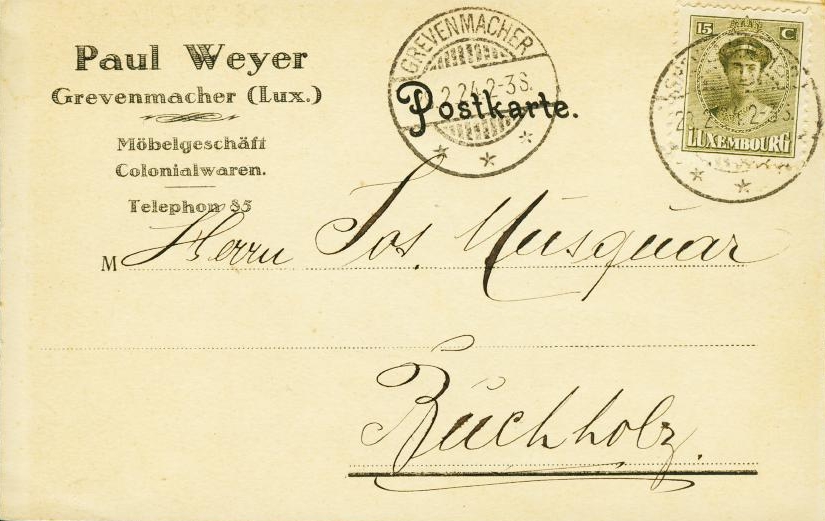 Paul Weyer
Grevenmacher (Lux.)
Möbelgeschäft
Colonialwaren.
Telephon 85
GREVENMACHER
2.24.2-3S.
Postkarte.
15 C
LUXEMBOURG
2-3S.
M Herrn Jos. Musquar
Buchholz.